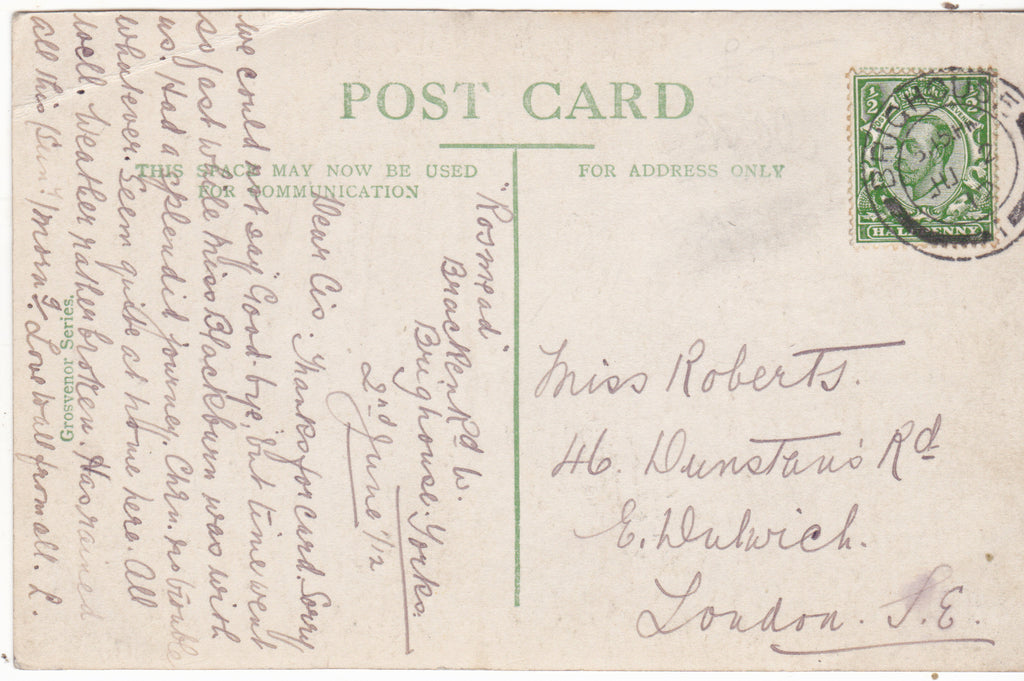 POST CARD
THIS SPACE MAY NOW BE USED
FOR COMMUNICATION
FOR ADDRESS ONLY
"Rosmead"
Bracken Rd W.
Brighouse. Yorks.
2nd June 1/12
Dear Cis. Thanks for card. Sorry
we could not say Good-bye, but time went
so fast while Miss Blackburn was with
us. Had a splendid journey. Chrn. no trouble
whatever. Seem quite at home here. All
well. Weather rather broken. Has rained
all this (Sun.y) Morng. Love wall from all. L.
Grosvenor Series.
Miss Roberts.
46. Dunstan's Rd
E. Dulwich.
London. S.E.
1/2
1/2
HALFPENNY
BRIGHOUSE
JU
12